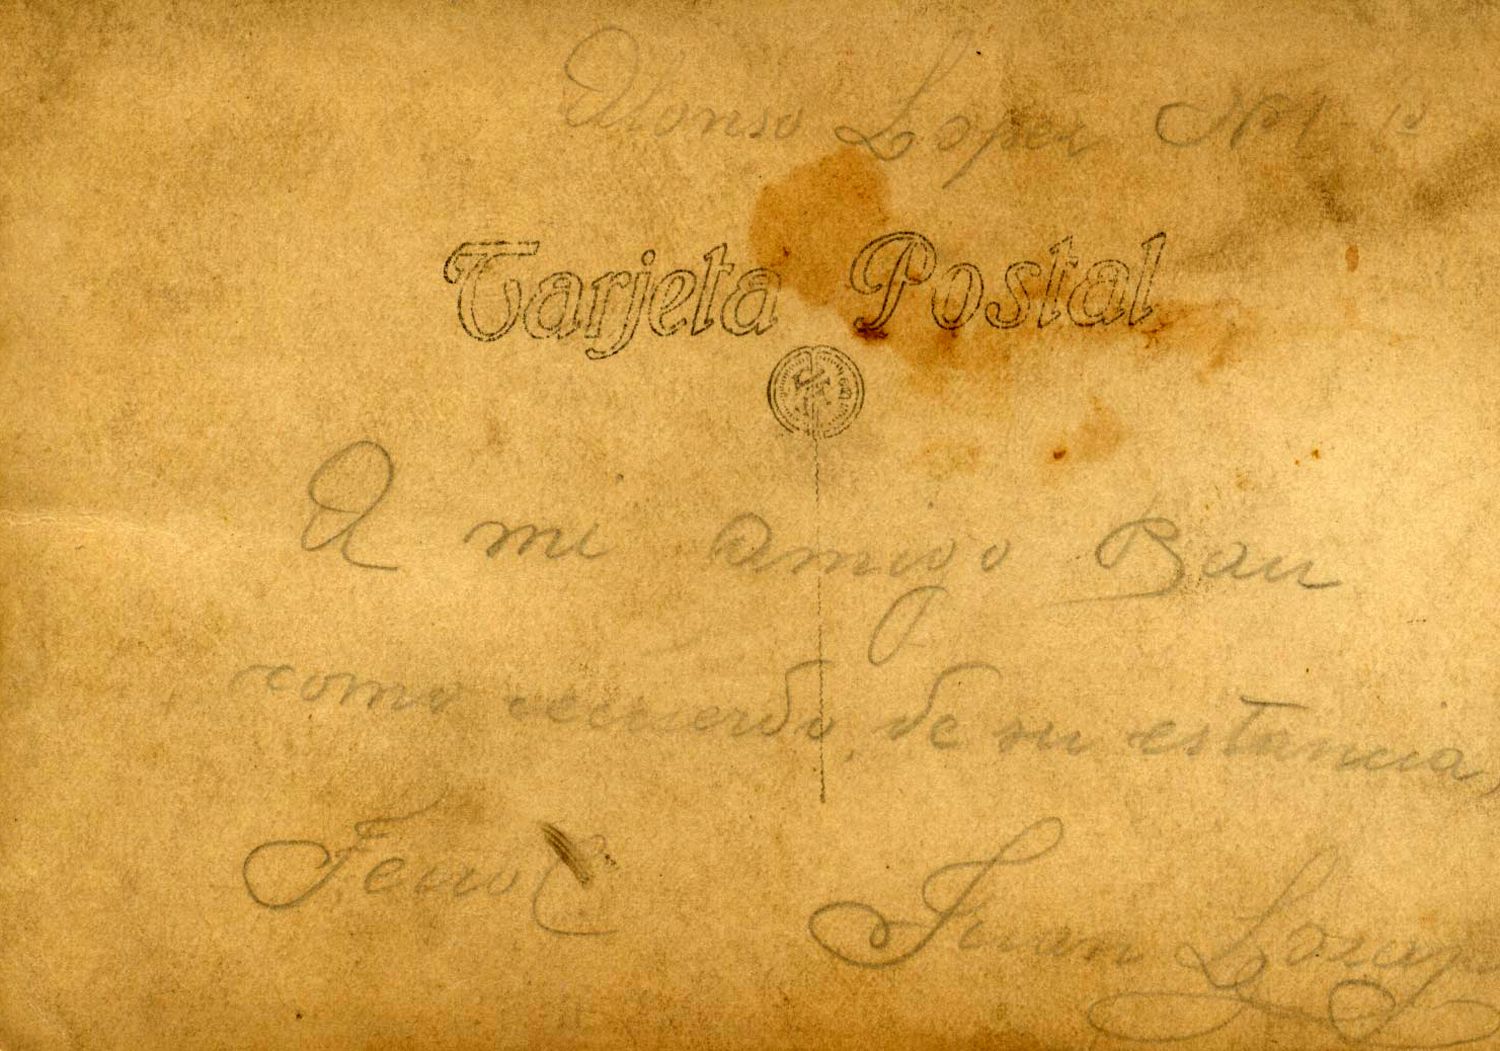 Alonso Lopez Nº 1-1º
Tarjeta Postal
A mi amigo Bau
como recuerdo de su estancia,
Ferrol
Juan